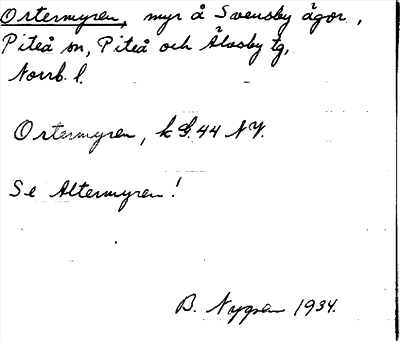 Ortermyren, myr å Svensby ägor,
Piteå sn, Piteå och Älvsby tg,
Norrb. l.
Ortermyren, k 44 NV.
Se Altermyren!
B. Nygren 1934.